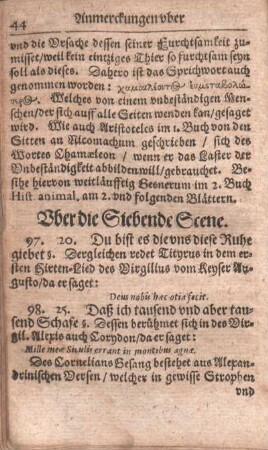 44 Anmerckungen vber
vnd die Vrsache dessen seiner Furchtsamkeit zu-
misset/weil kein eintziges Thier so furchtsam seyn
soll als dieses. Dahero ist das Sprichwort auch
genommen worden:
Welches von einem vnbeständigen Men-
schen/der sich auff alle Seiten wenden kan/gesaget
wird. Wie auch Aristoteles im 1. Buch von den
Sitten an Nicomachum geschrieben / sich des
Wortes Chamæleon / wenn er das Laster der
Vnbeständigkeit abbilden will/gebrauchet. Be-
sihe hiervon weitläufftig Gesnerum im 2. Buch
Hist animal, am 2. vnd folgenden Blättern.
Vber die Siebende Scene.
97. 20. Du bist es die vns diese Ruhe
giebet ꝛ. Dergleichen redet Tityrus in dem er-
sten Hirten-Lied des Virgilius vom Keyser Au-
gusto/da er saget:
Deus nobis hæc otia fecit.
98. 25. Daß ich tausend vnd aber tau-
send Schafe ꝛ. Dessen berühmet sich in des Vir-
gil. Alexis auch Corydon/da er saget:
Mille meæ Siculis errant in montibus agnæ.
Des Cornelians Gesang bestehet aus Alexan-
drinischen Versen / welcher in gewisse Strophen
vnd